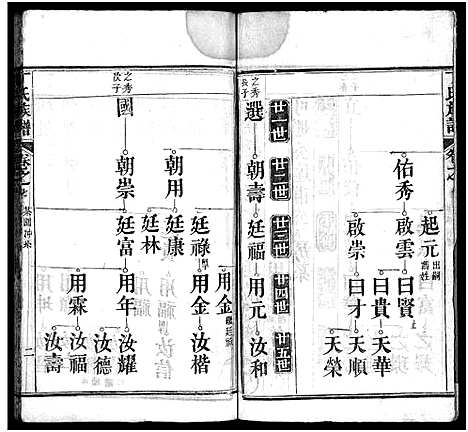 丁氏族譜
起元 出嗣舊姓
佑秀 啟雲 曰賢 上
曰貴 天華
啟崇 曰才 天順
天榮
廿一世 廿二世 廿三世 廿四世 廿五世
之秀長子
選 朝壽 廷福 用元 汝和
用金
朝用 廷祿 用金 汝楷
廷康
廷林
之秀次子
國 朝崇 廷富 用年 汝耀
汝德
用霖 汝福
汝壽
丁氏族譜
二